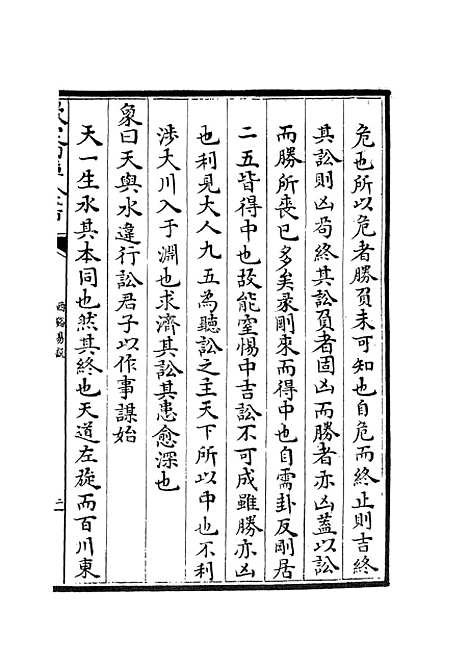 危也所以危者勝負未可知也自危而終止則吉終
其訟則凶苟終其訟負者固凶而勝者亦凶蓋以訟
而勝所喪已多矣彖剛來而得中也自需卦反剛居
二五皆得中也故能窒惕中吉訟不可成雖勝亦凶
也利見大人九五為聽訟之主天下所以中也不利
涉大川入于淵也求濟其訟其患愈深也
象曰天與水違行訟君子以作事謀始
天一生水其本同也然其終也天道左旋而百川東
西谿易説
二